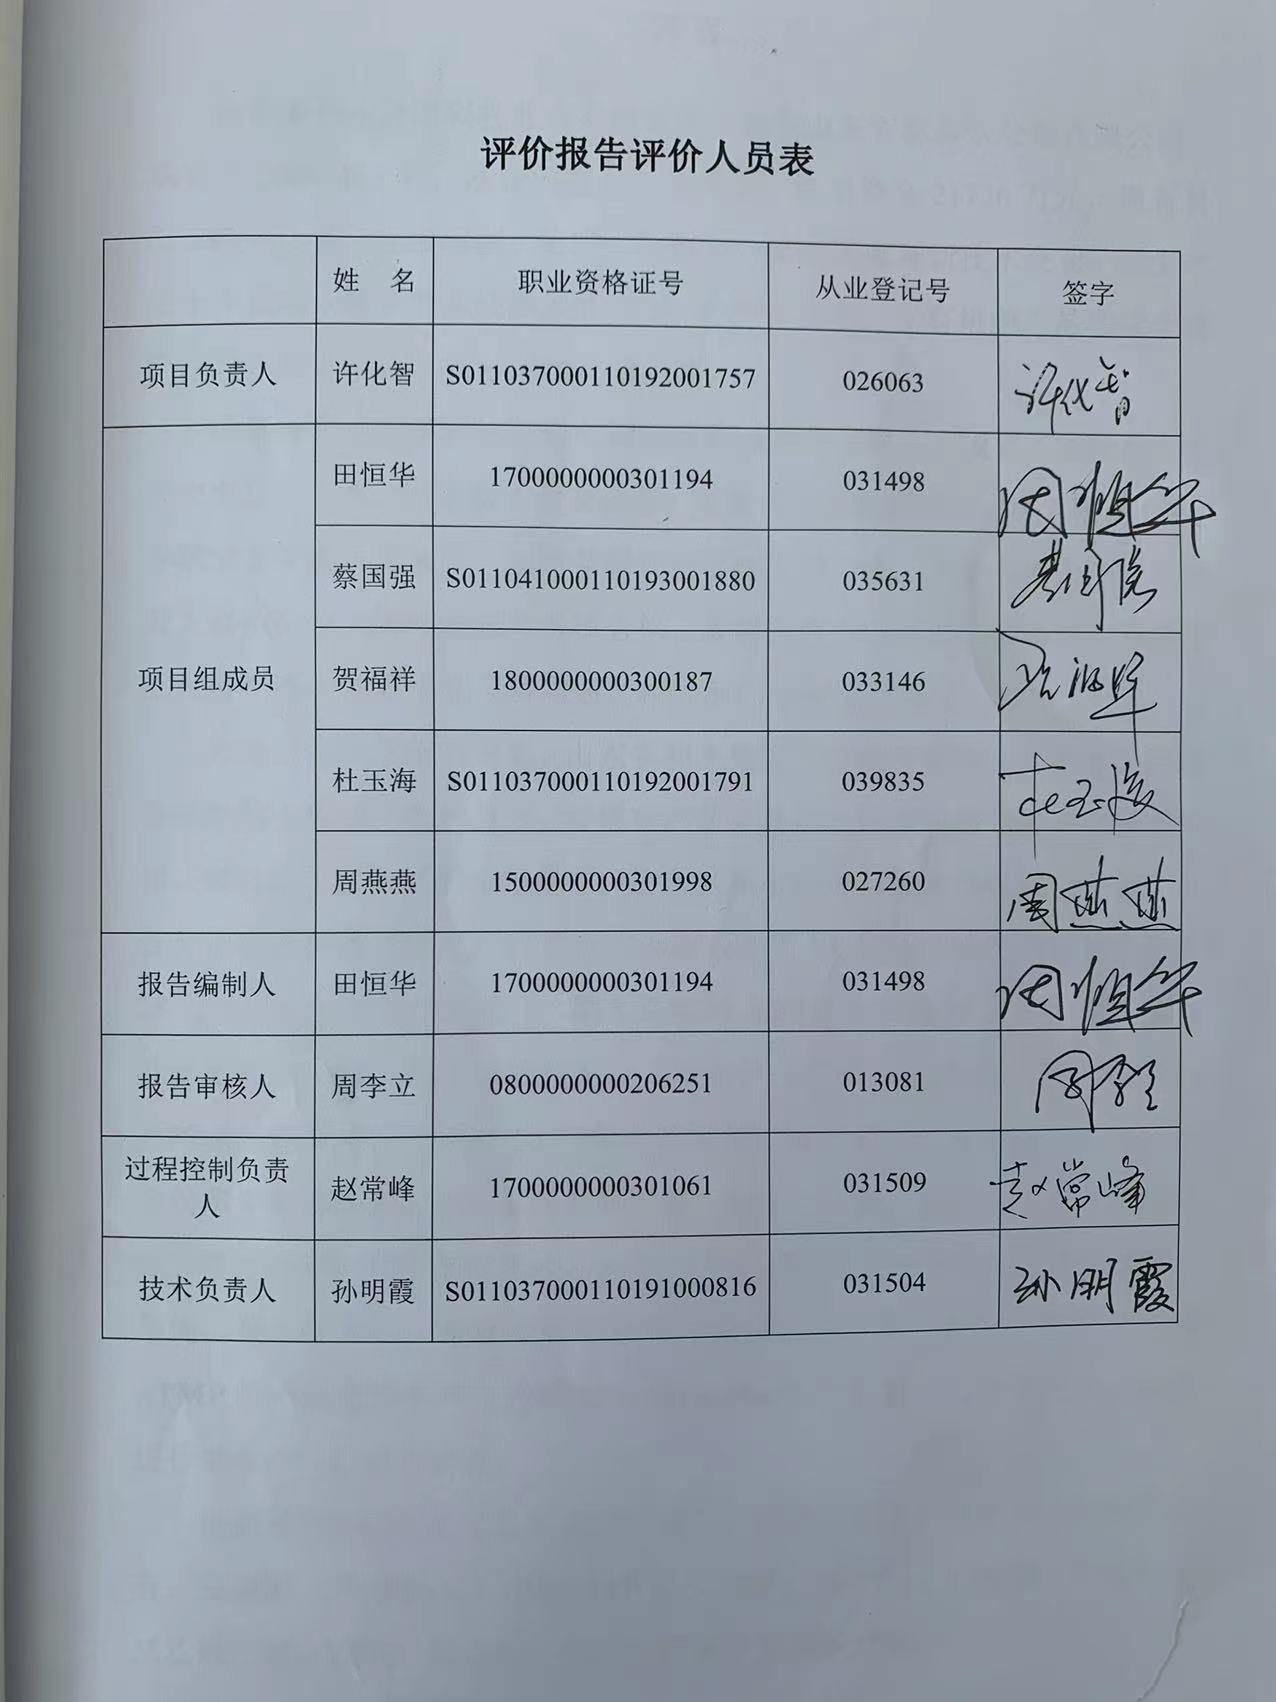 评价报告评价人员表
姓 名 职业资格证号 从业登记号 签字
项目负责人 许化智 S011037000110192001757 026063 许化智
项目组成员
田恒华 1700000000301194 031498 田恒华
蔡国强 S011041000110193001880 035631
贺福祥 1800000000300187 033146
杜玉海 S011037000110192001791 039835 杜玉海
周燕燕 1500000000301998 027260 周燕燕
报告编制人 田恒华 1700000000301194 031498 田恒华
报告审核人 周李立 0800000000206251 013081 周李立
过程控制负责
人
赵常峰 1700000000301061 031509 赵常峰
技术负责人 孙明霞 S011037000110191000816 031504 孙明霞